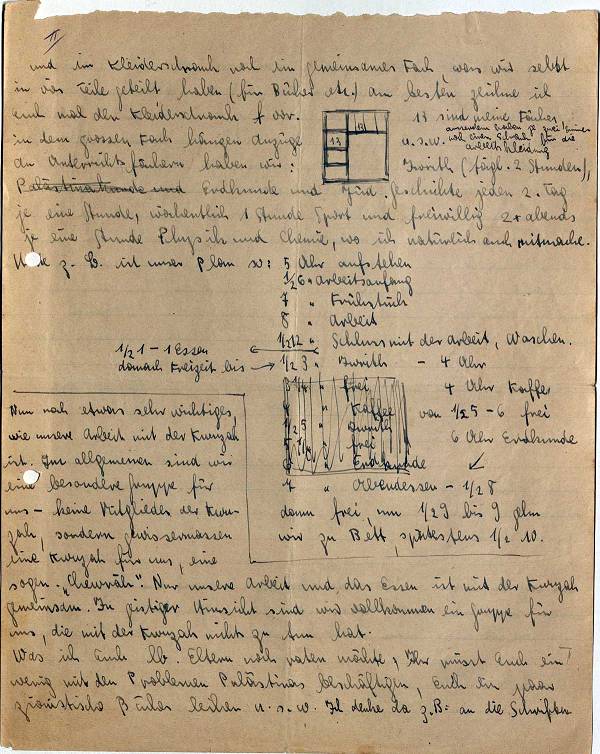 II
und im Kleiderschrank noch ein gemeinsames Fach was wir selbst
in drei Teile geteilt haben (für Bücher etc.) am besten zeichne ich
euch mal den Kleiderschrank vor.
13 sind meine Fächer
in dem grossen Fach hängen Anzüge
u.s.w.
ausserdem haben je zwei immer noch einen Schrank für die Arbeitskleidung
13
13
An Unterrichtsfächern haben wir:
Iwrith (tägl. 2 Stunden),
Palästinakunde und Erdkunde und Jüd. Geschichte jeden 2. Tag
je eine Stunde, wöchentlich 1 Stunde Sport und freiwillig 2 x abends
je eine Stunde Physik und Chemie, wo ich natürlich auch mitmache.
z. B. ist unser Plan so: 5 Uhr aufstehen
1/2 6 " Arbeitsanfang
7 " Frühstück
8 " Arbeit
1/2 12 " Schluss mit der Arbeit, Waschen.
1/2 1 – 1 Essen
danach Freizeit bis → 1/2 3 " Iwrith – 4 Uhr
frei
4 Uhr Kaffee
Kaffee
von 1/2 5 – 6 frei
1/2 5 " Iwrith
frei
6 Uhr Erdkunde
Erdkunde
7 " Abendessen – 1/2 8
dann frei, um 1/2 9 bis 9 gehn
wir zu Bett, spätestens 1/2 10.
Nun noch etwas sehr wichtiges,
wie unsere Arbeit mit der Kwuzah
ist. Im allgemeinen sind wir
eine besondere Gruppe für
uns – keine Mitglieder der Kwu-
zah, sondern gewissermassen
eine Kwuzah für uns, eine
sogen. "Chewrah". Nur unsere Arbeit und das Essen ist mit der Kwuzah
gemeinsam. In geistiger Hinsicht sind wir vollkommen ein Gruppe für
uns, die mit der Kwuzah nichts zu tun hat.
Was ich Euch lb. Eltern noch raten möchte, Ihr müsst Euch ein
wenig mit den Problemen Palästinas beschäftigen, Euch ein paar
zionistische Bücher leihen u.s.w. Ich denke da z.B. an die Schriften